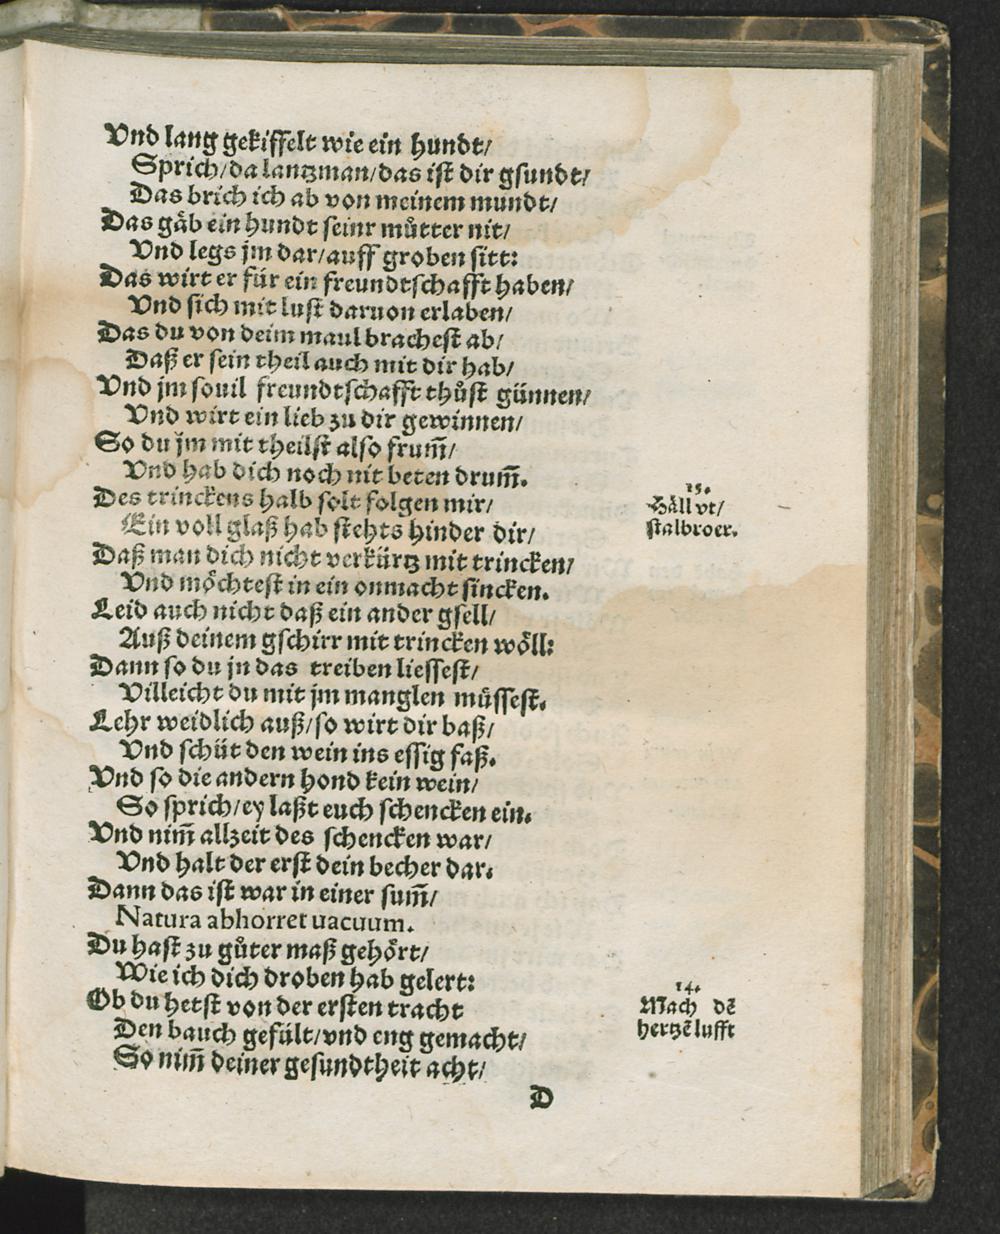 Vnd lang gekiffelt wie ein hundt/
Sprich/da lantzman/das ist dir gsundt/
Das brich ich ab von meinem mundt/
Das gäb ein hundt seinr můtter nit/
Vnd legs jm dar/auff groben sitt:
Das wirt er für ein freundtschafft haben/
Vnd sich mit lust daruon erlaben/
Das du von deim maul brachest ab/
Daß er sein theil auch mit dir hab/
Vnd jm souil freundtschafft thůst günnen/
Vnd wirt ein lieb zu dir gewinnen/
So du jm mit theilst also frum̃/
Vnd hab dich noch nit beten drum̃.
Des trinckens halb solt folgen mir/
Ein voll glaß hab stehts hinder dir/
Daß man dich nicht verkürtz mit trincken/
Vnd möchtest in ein onmacht sincken.
Leid auch nicht daß ein ander gsell/
Auß deinem gschirr mit trincken wöll:
Dann so du jn das treiben liessest/
Villeicht du mit jm manglen müssest.
Lehr weidlich auß/so wirt dir baß/
Vnd schüt den wein ins essig faß.
Vnd so die andern hond kein wein/
So sprich/ey laßt euch schencken ein.
Vnd nim̃ allzeit des schencken war/
Vnd halt der erst dein becher dar.
Dann das ist war in einer sum̃/
Natura abhorret uacuum.
Du hast zu gůter maß gehört/
Wie ich dich droben hab gelert:
Ob du hetst von der ersten tracht
Den bauch gefült/vnd eng gemacht/
So nim̃ deiner gesundtheit acht/
D
15.
Häll vt/
stalbroer.
14.
Mach dẽ
hertzẽ lufft